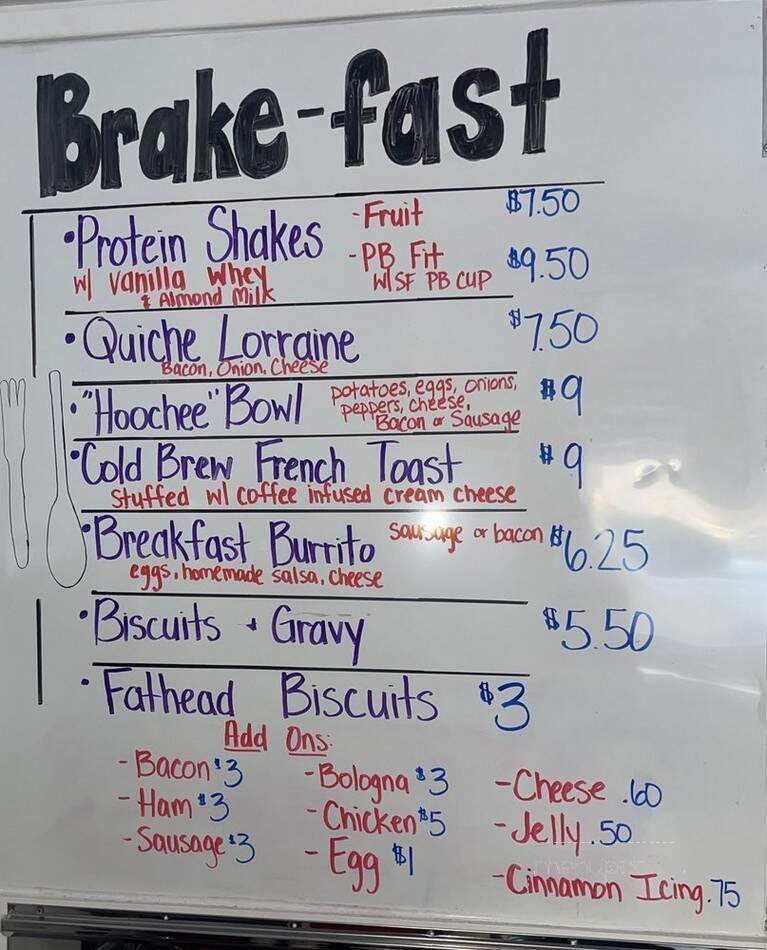 Brake-fast
• Protein Shakes -Fruit $7.50
w/ Vanilla Whey & Almond Milk -PB Fit w/SF PB CUP $9.50
• Quiche Lorraine $7.50
Bacon, Onion, Cheese
• "Hoochee" Bowl potatoes, eggs, onions, $9
peppers, cheese,
Bacon or Sausage
• Cold Brew French Toast $9
Stuffed w/ coffee infused cream cheese
• Breakfast Burrito sausage or bacon $6.25
eggs, homemade salsa, cheese
• Biscuits + Gravy $5.50
• Fathead Biscuits $3
Add Ons:
- Bacon $3
- Ham $3
- Sausage $3
- Bologna $3
- Chicken $5
- Egg $1
- Cheese .60
- Jelly .50
- Cinnamon Icing .75